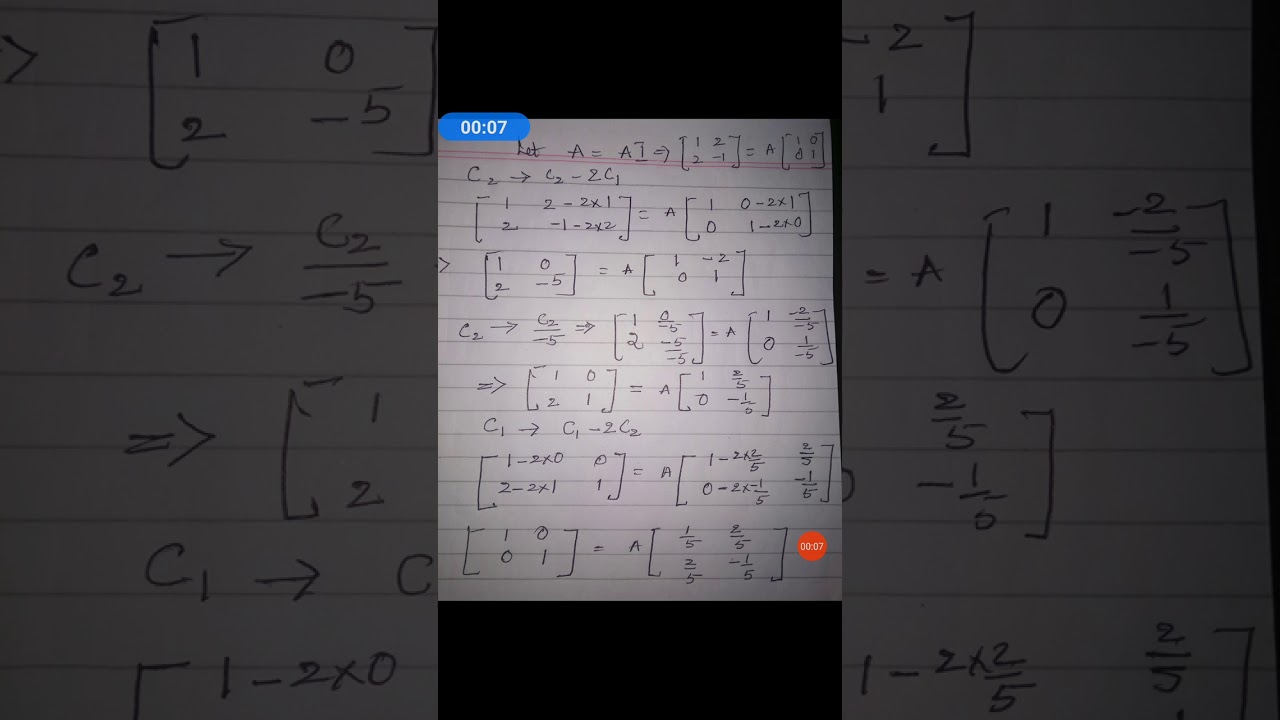 00:07
Let A = AI ⇒ [1 2; 2 -1] = A [1 0; 0 1]
C₂ → C₂ - 2C₁
[1 2-2×1; 2 -1-2×2] = A [1 0-2×1; 0 1-2×0]
> [1 0; 2 -5] = A [1 -2; 0 1]
C₂ → C₂/-5 ⇒ [1 0/-5; 2 -5/-5] = A [1 -2/-5; 0 1/-5]
⇒ [1 0; 2 1] = A [1 2/5; 0 -1/5]
C₁ → C₁ - 2C₂
[1-2×0 0; 2-2×1 1] = A [1-2×2/5 2/5; 0-2×-1/5 -1/5]
[1 0; 0 1] = A [1/5 2/5; 2/5 -1/5]
00:07